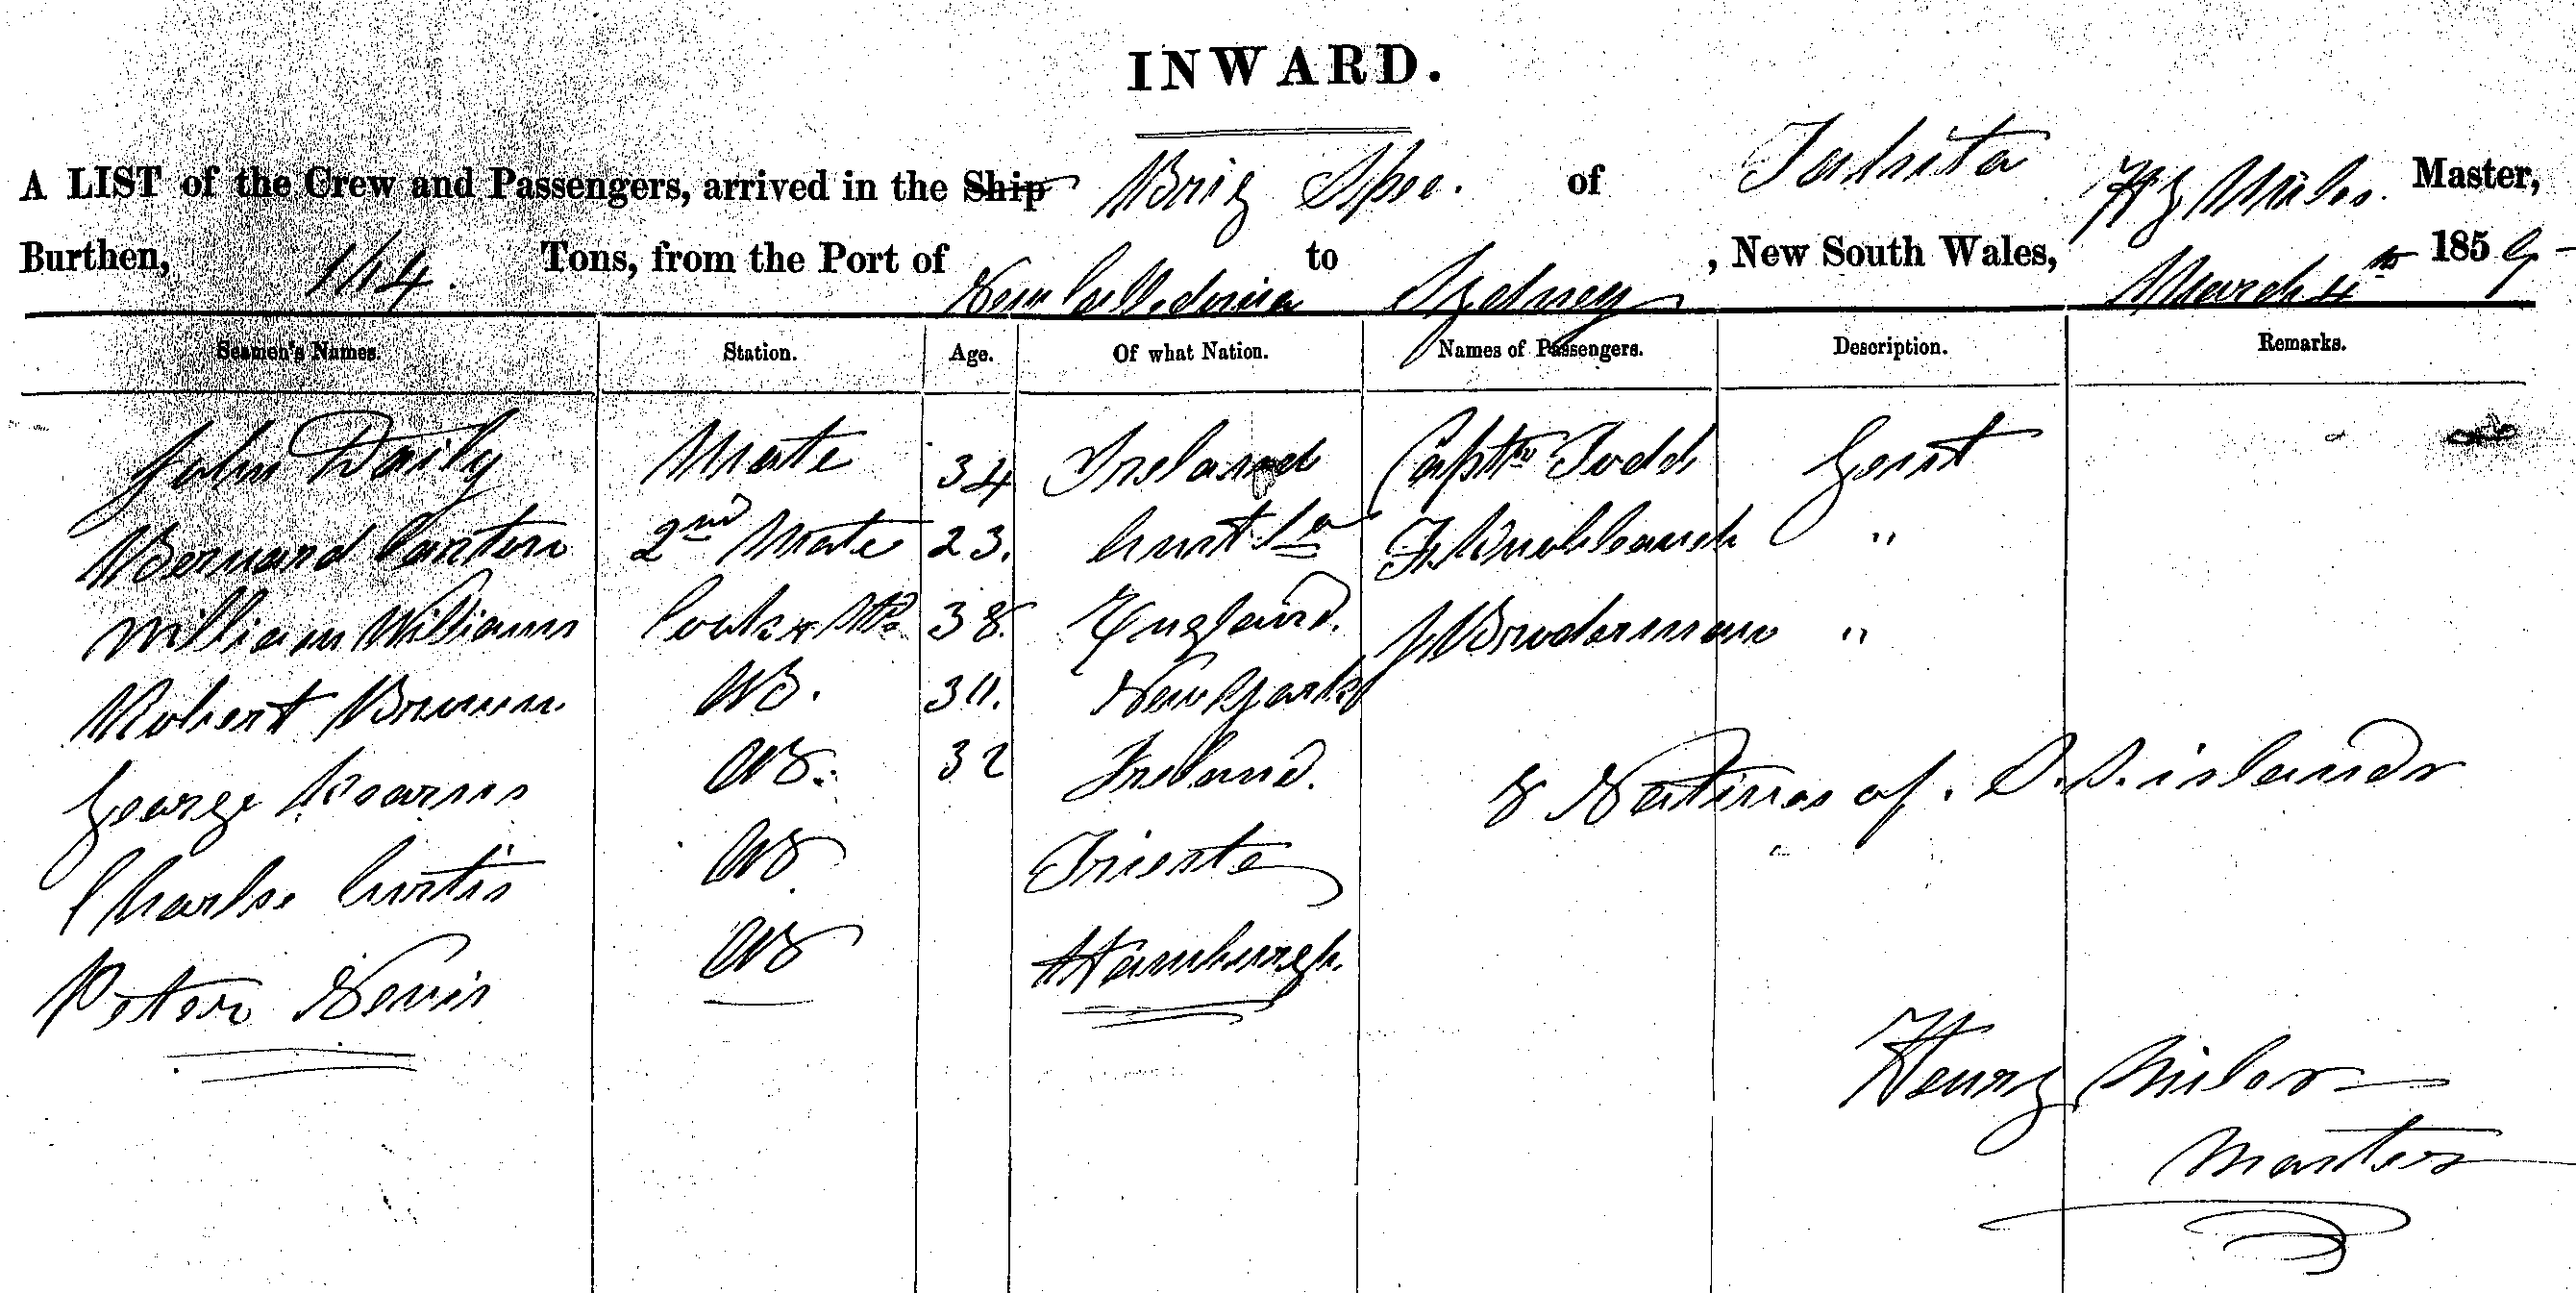 INWARD.
A LIST of the Crew and Passengers, arrived in the Ship Brig Spec. of Tahita Hy Miles. Master,
Burthen, 114. Tons, from the Port of New Calledonia to Sydney, New South Wales, March 4th 1859
Seamen's Names. Station. Age. Of what Nation. Names of Passengers. Description. Remarks.
John Daily Mate 34 Ireland Captn Todd Gent
Bernard Carter 2nd Mate 23. "
William Williams Cook & Std 38. England. "
Robert Brown AB. New York
George Kearns AB. 32 Ireland.
8 Natives of S.S. islands
Charlse Curtis AB Trieste
Peter Nevis AB Hamburgh.
Henry Miles
Master